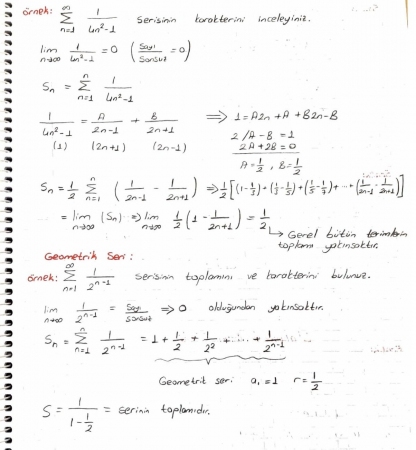 örnek: ∞ ∑ n=1 1/4n²-1 serisinin karakterini inceleyiniz.
lim n→∞ 1/4n²-1 = 0 (Sayı/Sonsuz = 0)
Sn = n ∑ n=1 1/4n²-1
1/4n²-1 = A/2n-1 + B/2n+1 ⟹ 1 = A2n + A + B2n - B
(1) (2n+1) (2n-1) 2/A - B = 1
2A + 2B = 0
A = 1/2 , B = 1/2
Sn = 1/2 n ∑ n=1 (1/2n-1 - 1/2n+1) ⟹ 1/2 [(1 - 1/3) + (1/3 - 1/5) + (1/5 - 1/7) + ... + (1/2n-1 - 1/2n+1)]
= lim n→∞ (Sn) ⟹ lim n→∞ 1/2 (1 - 1/2n+1) = 1/2
↳ Genel bütün terimlerin
toplamı yakınsaktır.
Geometrik Seri :
örnek: ∞ ∑ n=1 1/2ⁿ⁻¹ serisinin toplamını ve karakterini bulunuz.
lim n→∞ 1/2ⁿ⁻¹ = Sayı/Sonsuz ⟹ 0 olduğundan yakınsaktır.
Sn = n ∑ n=1 1/2ⁿ⁻¹ = 1 + 1/2 + 1/2² + ... + 1/2ⁿ⁻¹
Geometrik seri a₁ = 1 r = 1/2
S = 1/1 - 1/2 = serinin toplamıdır.